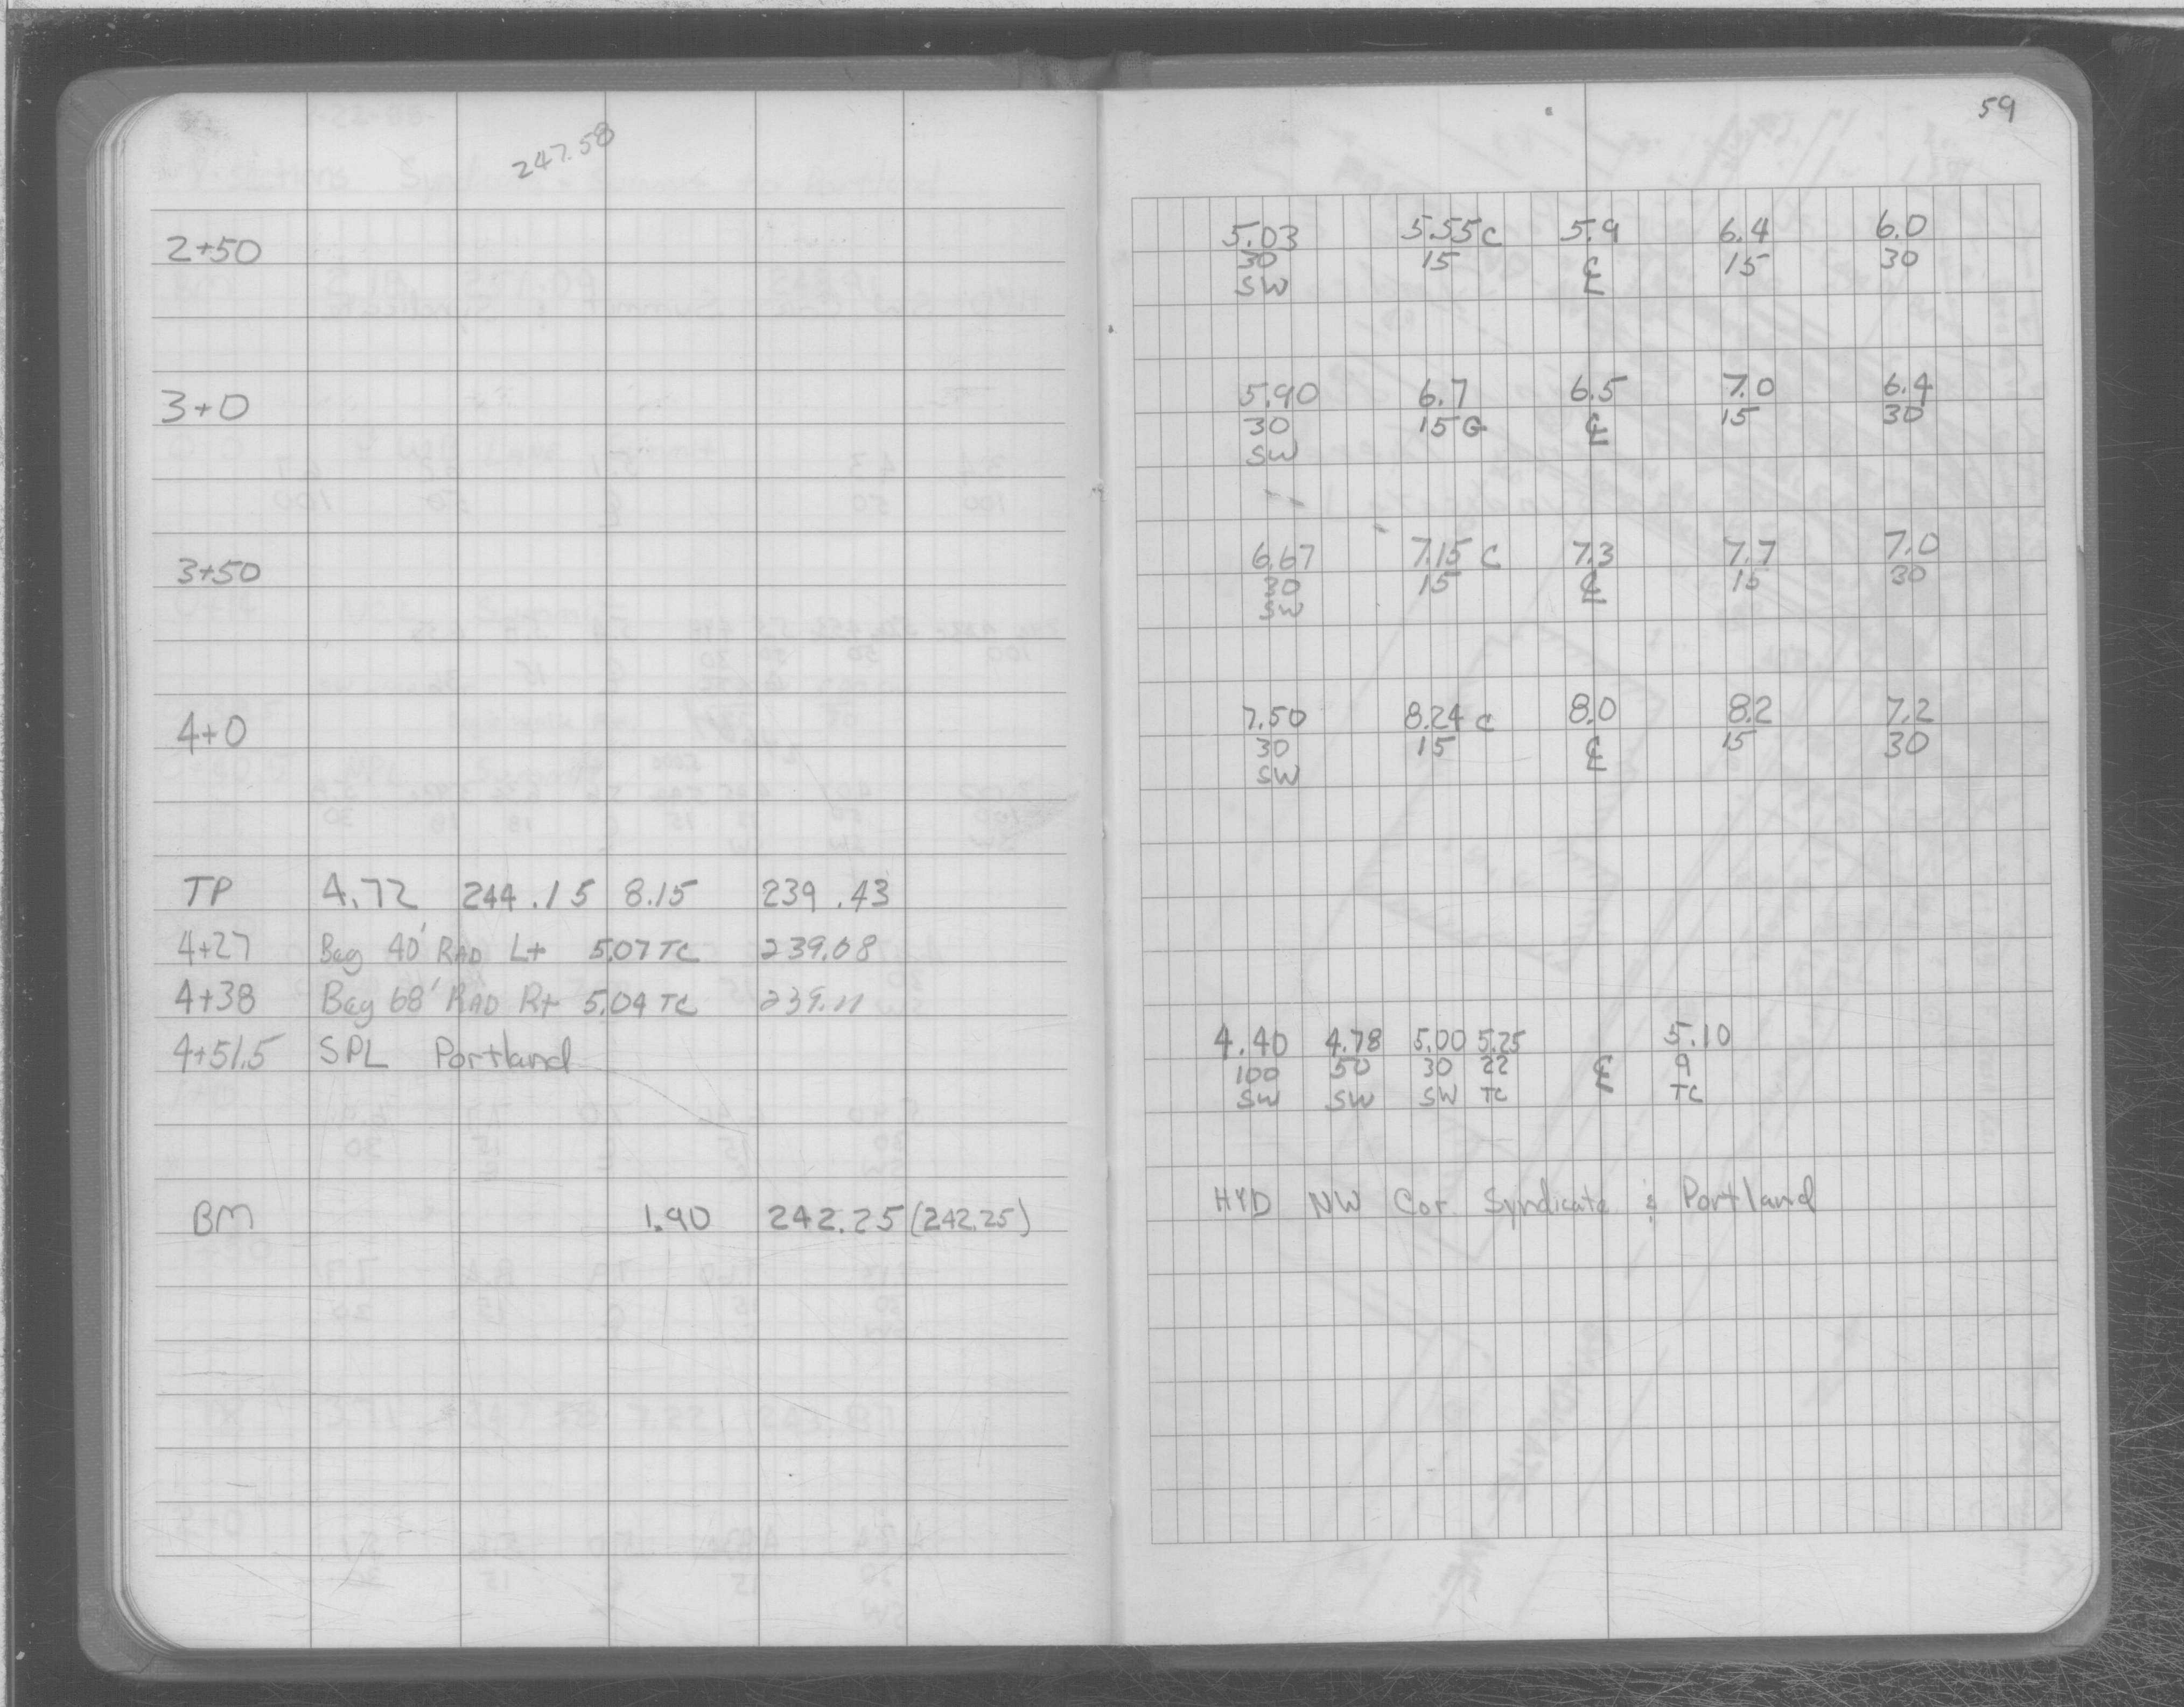 59
247.58
2+50 5.03 5.55 C 5.9 6.4 6.0
30 15 ℄ 15 30
SW
3+0 5.90 6.7 6.5 7.0 6.4
30 15 G ℄ 15 30
SW
3+50 6.67 7.15 C 7.3 7.7 7.0
30 15 ℄ 15 30
SW
4+0 7.50 8.24 C 8.0 8.2 7.2
30 15 ℄ 15 30
SW
TP 4.72 244.15 8.15 239.43
4+27 Beg 40' RAD Lt 5.07 TC 239.08
4+38 Beg 68' RAD Rt 5.04 TC 239.11
4+51.5 SPL Portland 4.40 4.78 5.00 5.25 5.10
100 50 30 22 ℄ 9
SW SW SW TC TC
BM 1.90 242.25 (242.25) HYD NW Cor. Syndicate & Portland